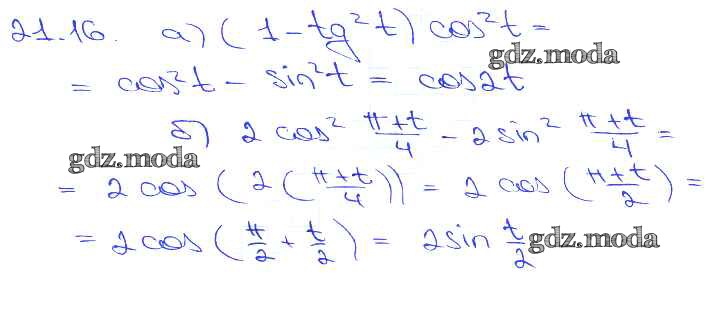 21.16. а) (1 - tg² t) cos² t =
gdz.moda
= cos² t - sin² t = cos 2t
б) 2 cos² (π+t)/4 - 2 sin² (π+t)/4 =
gdz.moda
= 2 cos (2 ((π+t)/4)) = 2 cos ((π+t)/2) =
= 2 cos (π/2 + t/2) = 2 sin t/2
gdz.moda